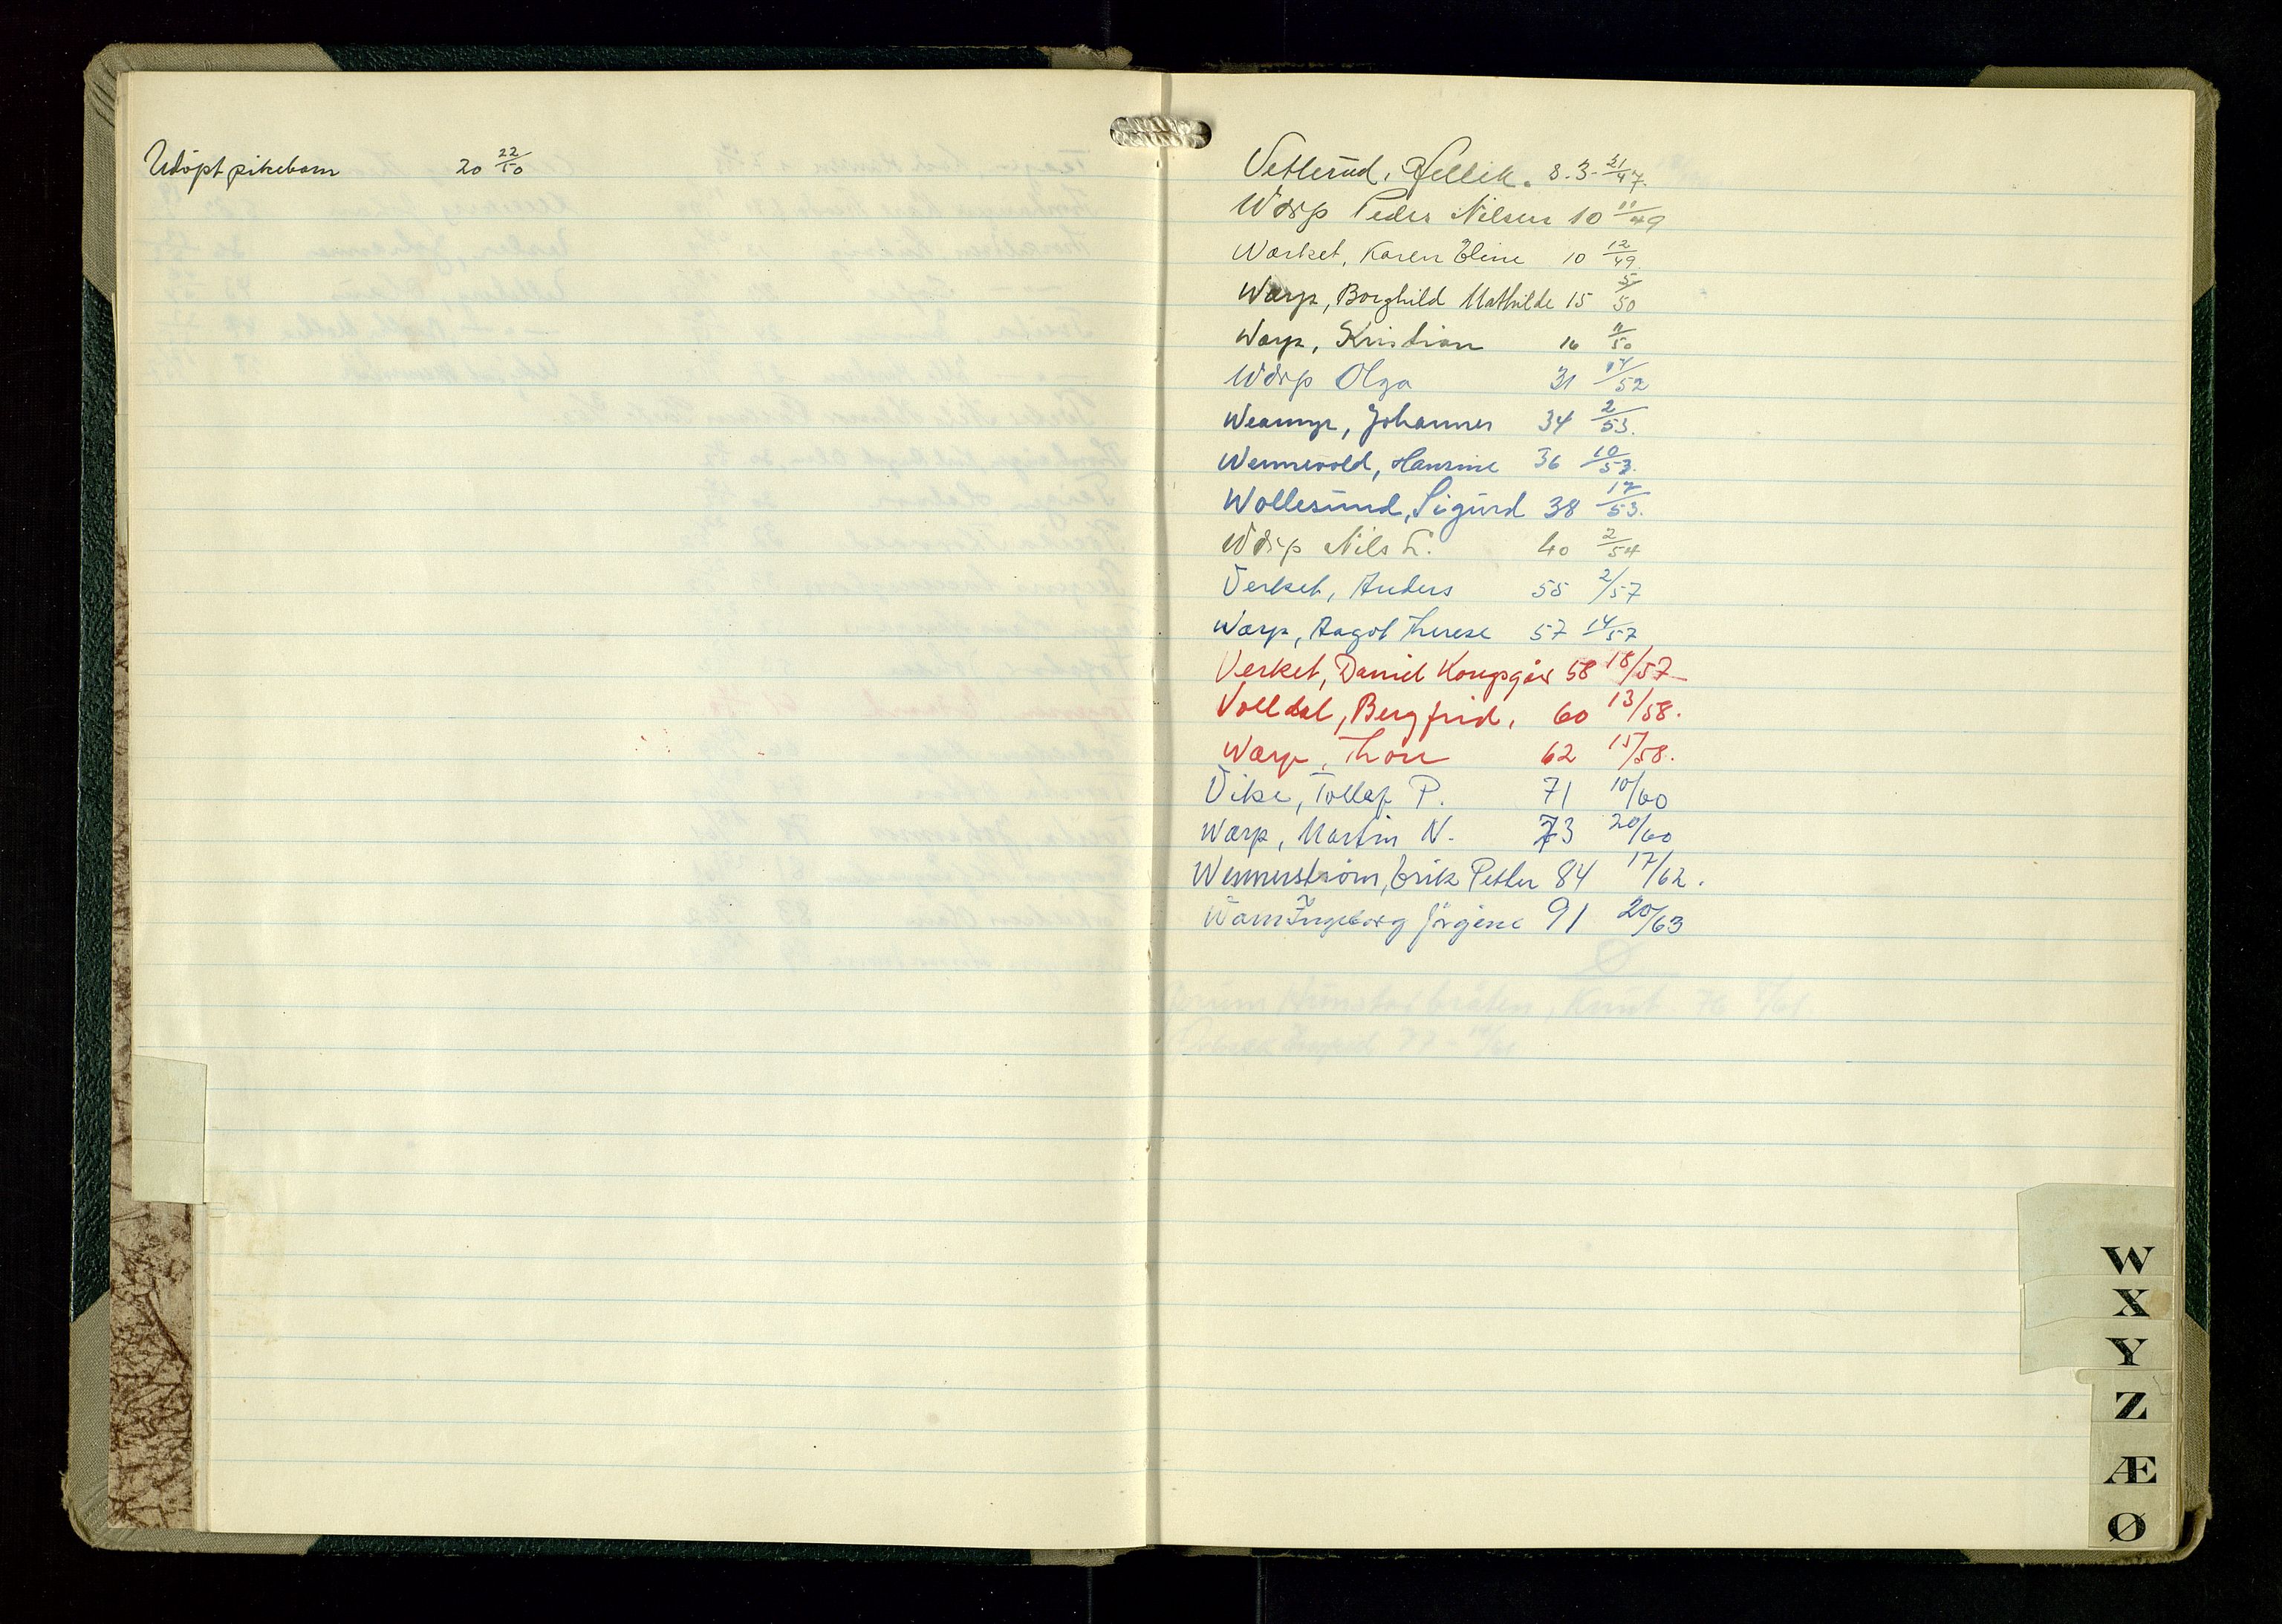 Udöpt pikebarn 20 22/50
Vetlerud, Hellik. 8.3. 21/47.
Wærp Peder Nilsen 10 11/49
Wærket, Karen Eline 10 12/49.
Wærp, Borghild Mathilde 15 5/50
Wærp, Kristian 16 11/50
Wærp Olga 31 14/52
Weamyr, Johannes 34 2/53.
Wennevold, Hansine 36 10/53.
Wollesund, Sigurd 38 17/53.
Wærp Nils L. 40 2/54
Verket, Anders 55 2/57
Wærp, Aagot Therese 57 14/57
Verket, Daniel 58 18/57
Volldal, Bergfrid, 60 13/58.
Wærp, Thore 62 15/58.
Vike, Tollef P. 71 10/60
Wærp, Martin N. 73 20/60
Wennerström, Erik Petter 84 17/62.
Warn Ingeborg Jörgine 91 20/63
W
X
Y
Z
Æ
Ø